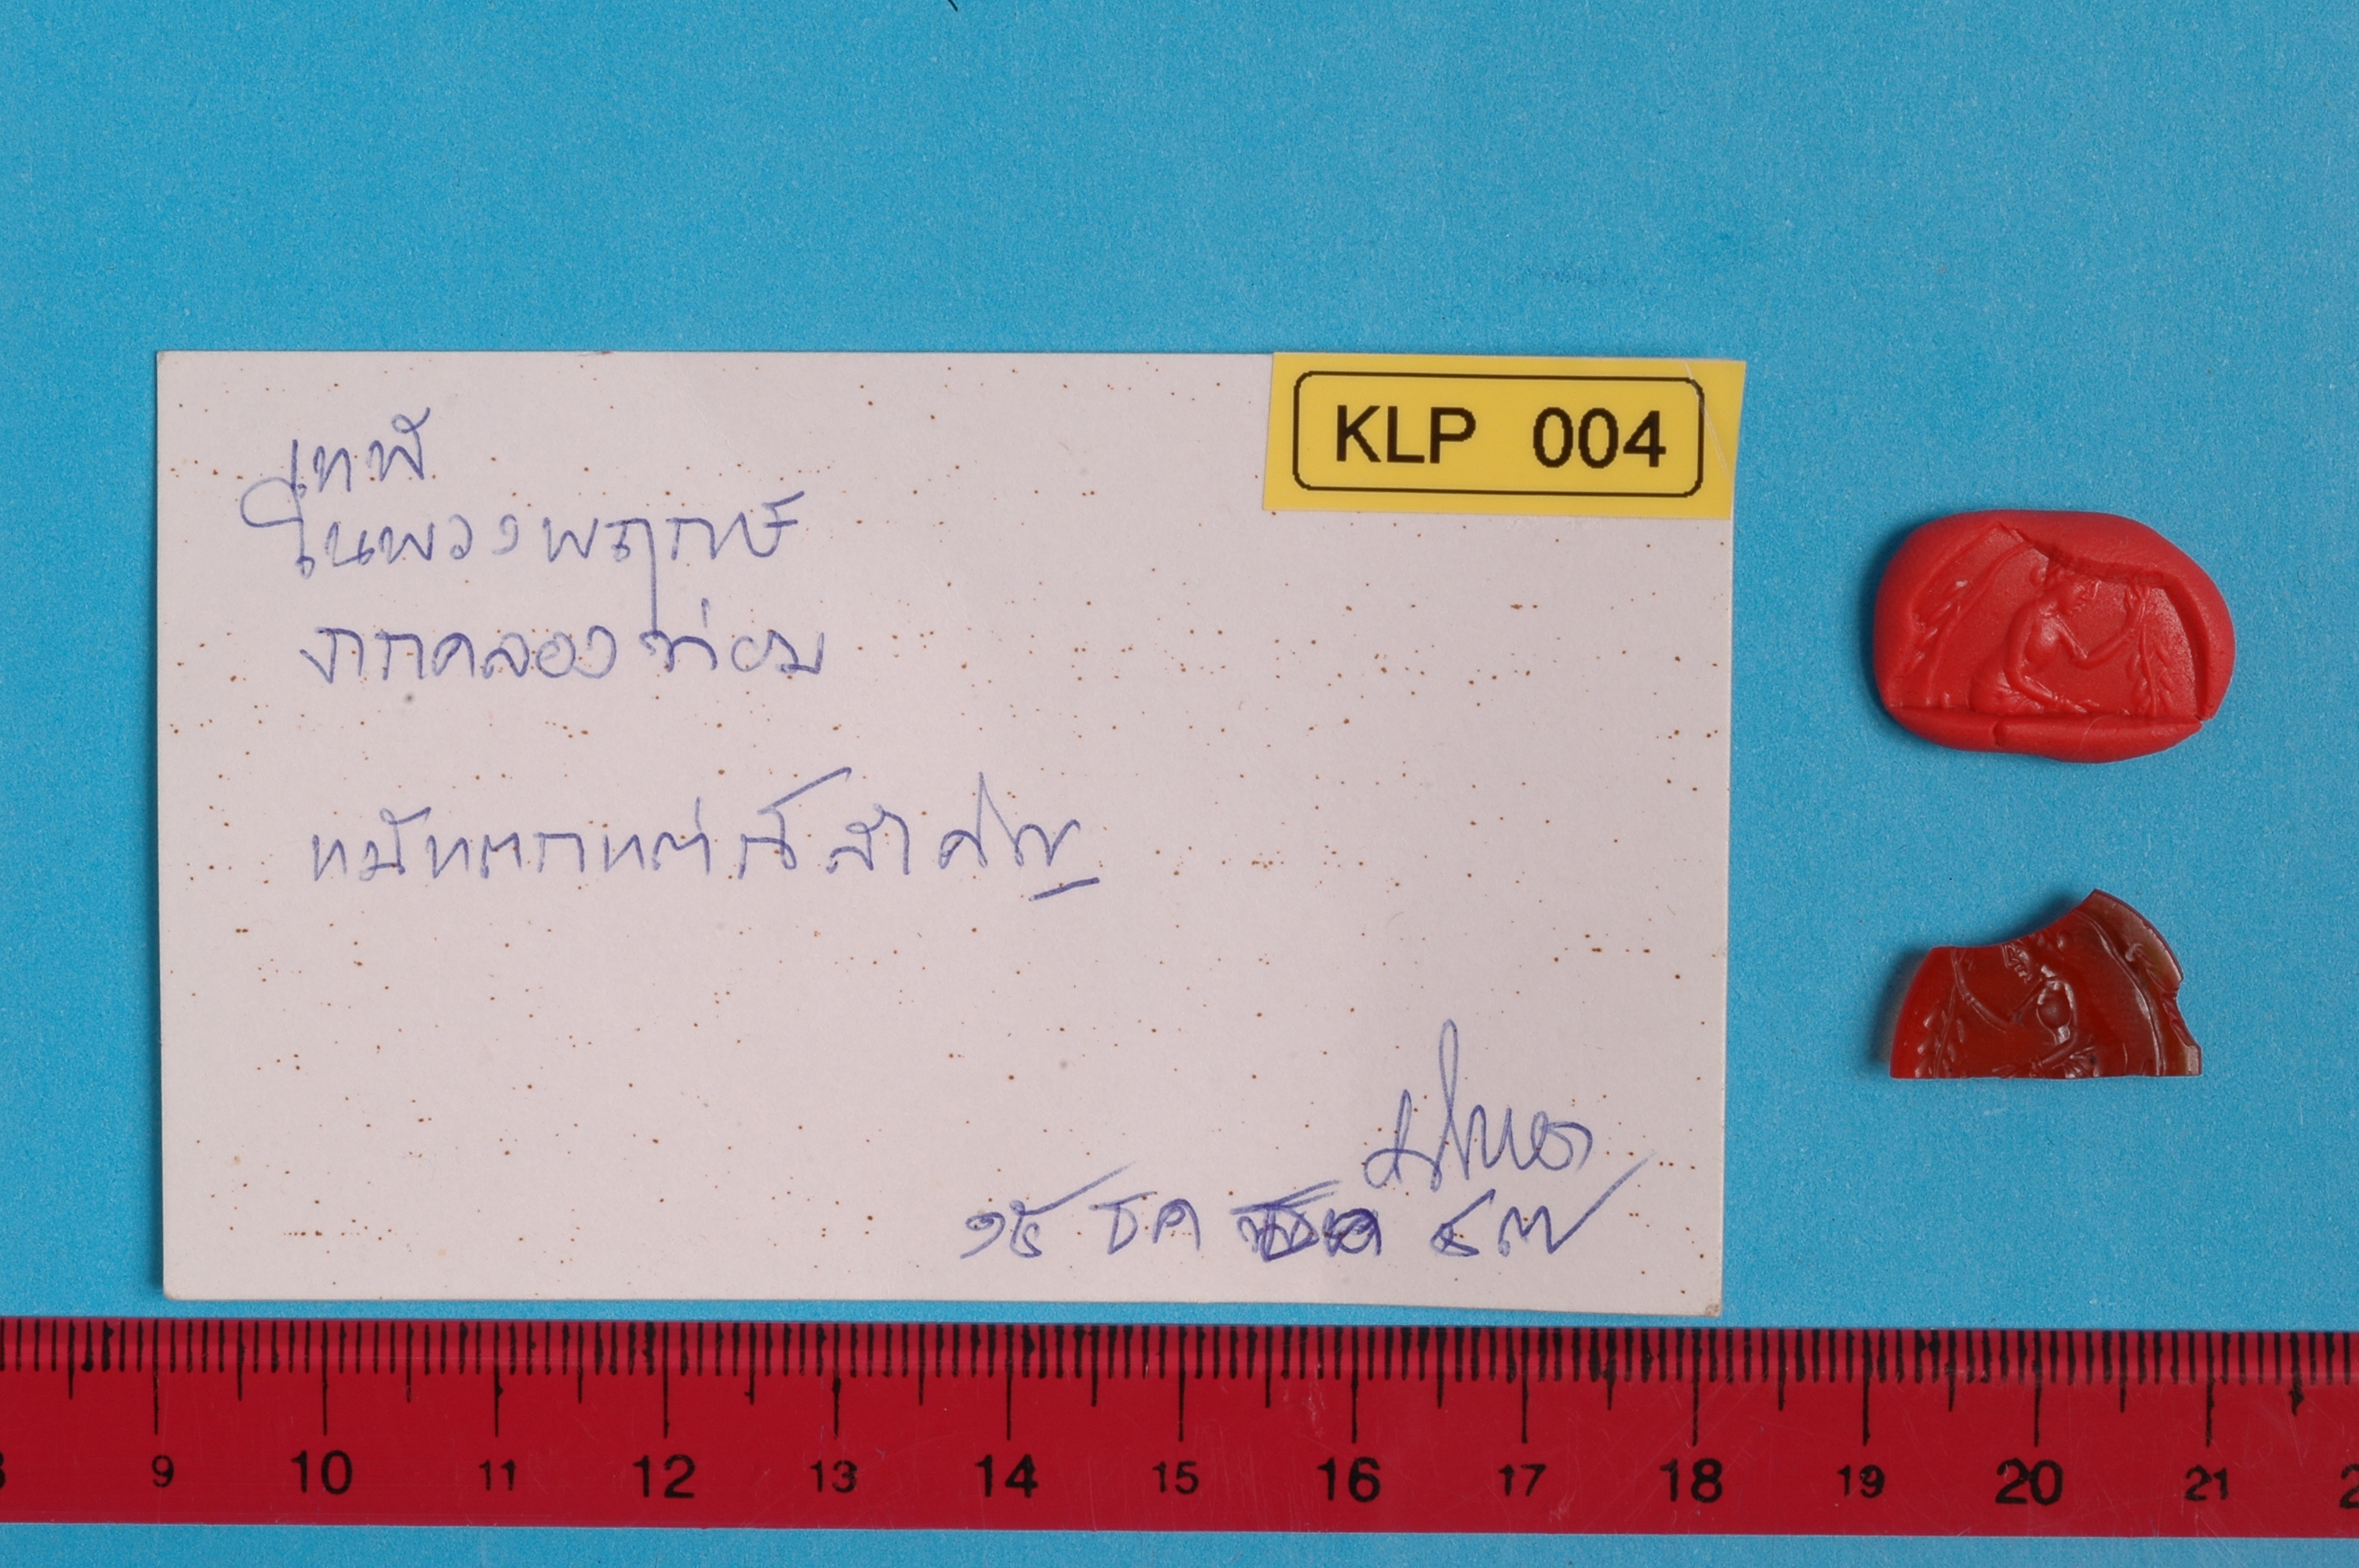 KLP 004
เทพี
ในพวงพฤกษ์
จากคลองท่อม
แม้แตกแต่ก็สำคัญ
๑๕ ธค ๕๗
8 9 10 11 12 13 14 15 16 17 18 19 20 21 2